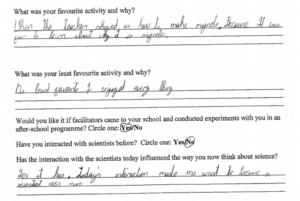 What was your favourite activity and why?
When the teachers showed us how to make magnets. Because it was
fun to learn about why it is magnetic.
What was your least favourite activity and why?
No least favourite I enjoyed every thing
Would you like it if facilitators came to your school and conducted experiments with you in an
after-school programme? Circle one: Yes/No
Have you interacted with scientists before? Circle one: Yes/No
Has the interaction with the scientists today influenced the way you now think about science?
Yes it has, Today's interaction made me want to become a
scientist even more